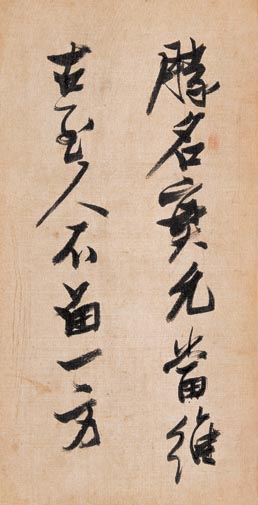 勝名實允當維
古至人不留一方